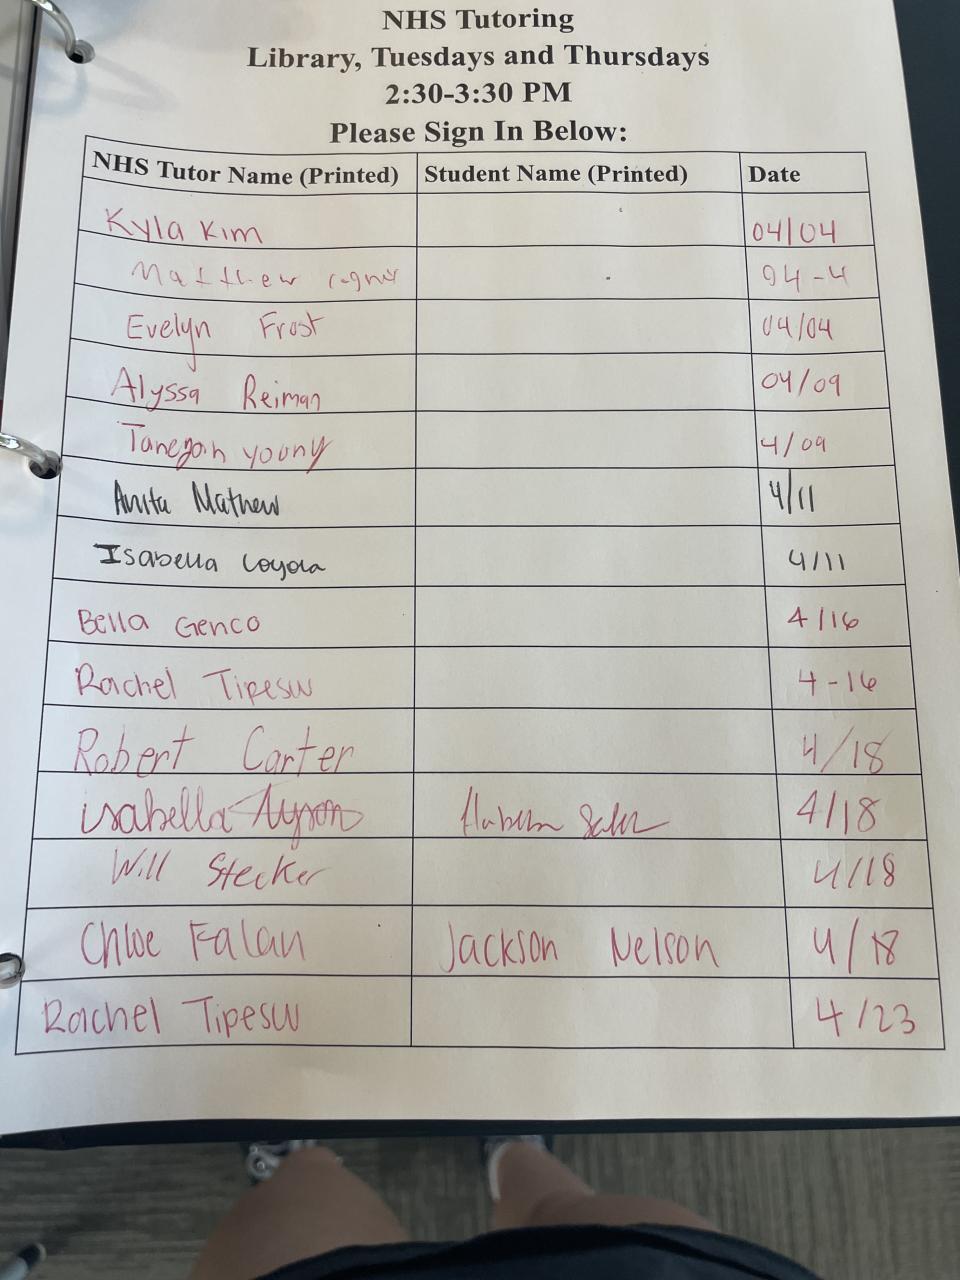 NHS Tutoring
Library, Tuesdays and Thursdays
2:30-3:30 PM
Please Sign In Below:
NHS Tutor Name (Printed) Student Name (Printed) Date
Kyla Kim 04/04
Matthew 04-4
Evelyn Frost 04/04
Alyssa Reiman 04/09
4/09
Anita Mathew 4/11
Isabella Loyola 4/11
Bella Genco 4/16
Rachel Tipesw 4-16
Robert Carter 4/18
isabella 4/18
Will Stecker 4/18
Chloe Falan Jackson Nelson 4/18
Rachel Tipesw 4/23